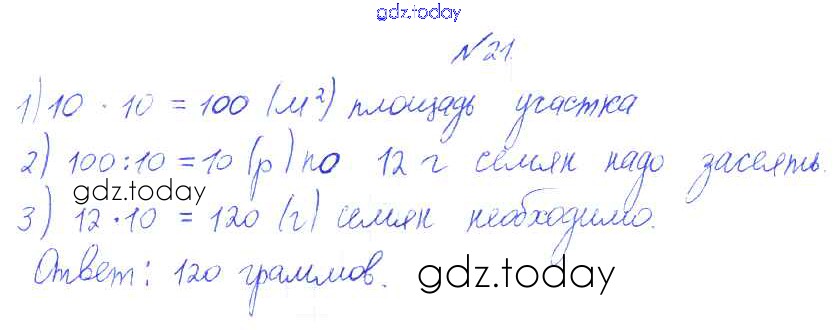 gdz.today
№21.
1) 10 · 10 = 100 (м²) площадь участка
2) 100:10 = 10 (р) по 12 г семян надо засеять.
gdz.today
3) 12 · 10 = 120 (г) семян необходимо.
Ответ: 120 граммов.
gdz.today